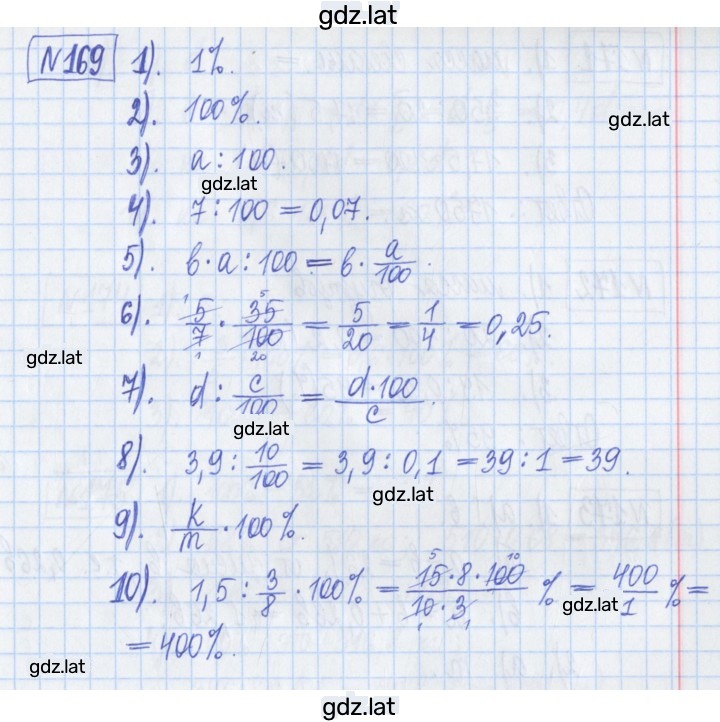 gdz.lat
№169 1). 1%.
2). 100%.
gdz.lat
3). a : 100.
gdz.lat
4). 7 : 100 = 0,07.
5). b · a : 100 = b · a/100.
6). 5/7 · 35/100 = 5/20 = 1/4 = 0,25.
gdz.lat
7). d : c/100 = d·100/c.
gdz.lat
8). 3,9 : 10/100 = 3,9 : 0,1 = 39 : 1 = 39.
gdz.lat
9). k/m · 100%.
10). 1,5 : 3/8 · 100% = 15·8·100/10·3 % = 400/1 % =
gdz.lat
= 400%.
gdz.lat
gdz.lat